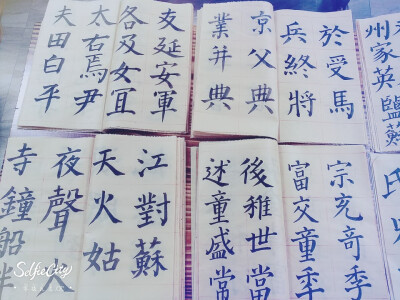 州家英鹽蘇
於受馬
兵終將
京父典
業并典
友延安軍
各及女宜
太右焉尹
夫田白平
宗充奇季
富交童季
後世當
述童盛常
江對蘇
天火姑
夜聲
寺鐘船半
SelfieCity